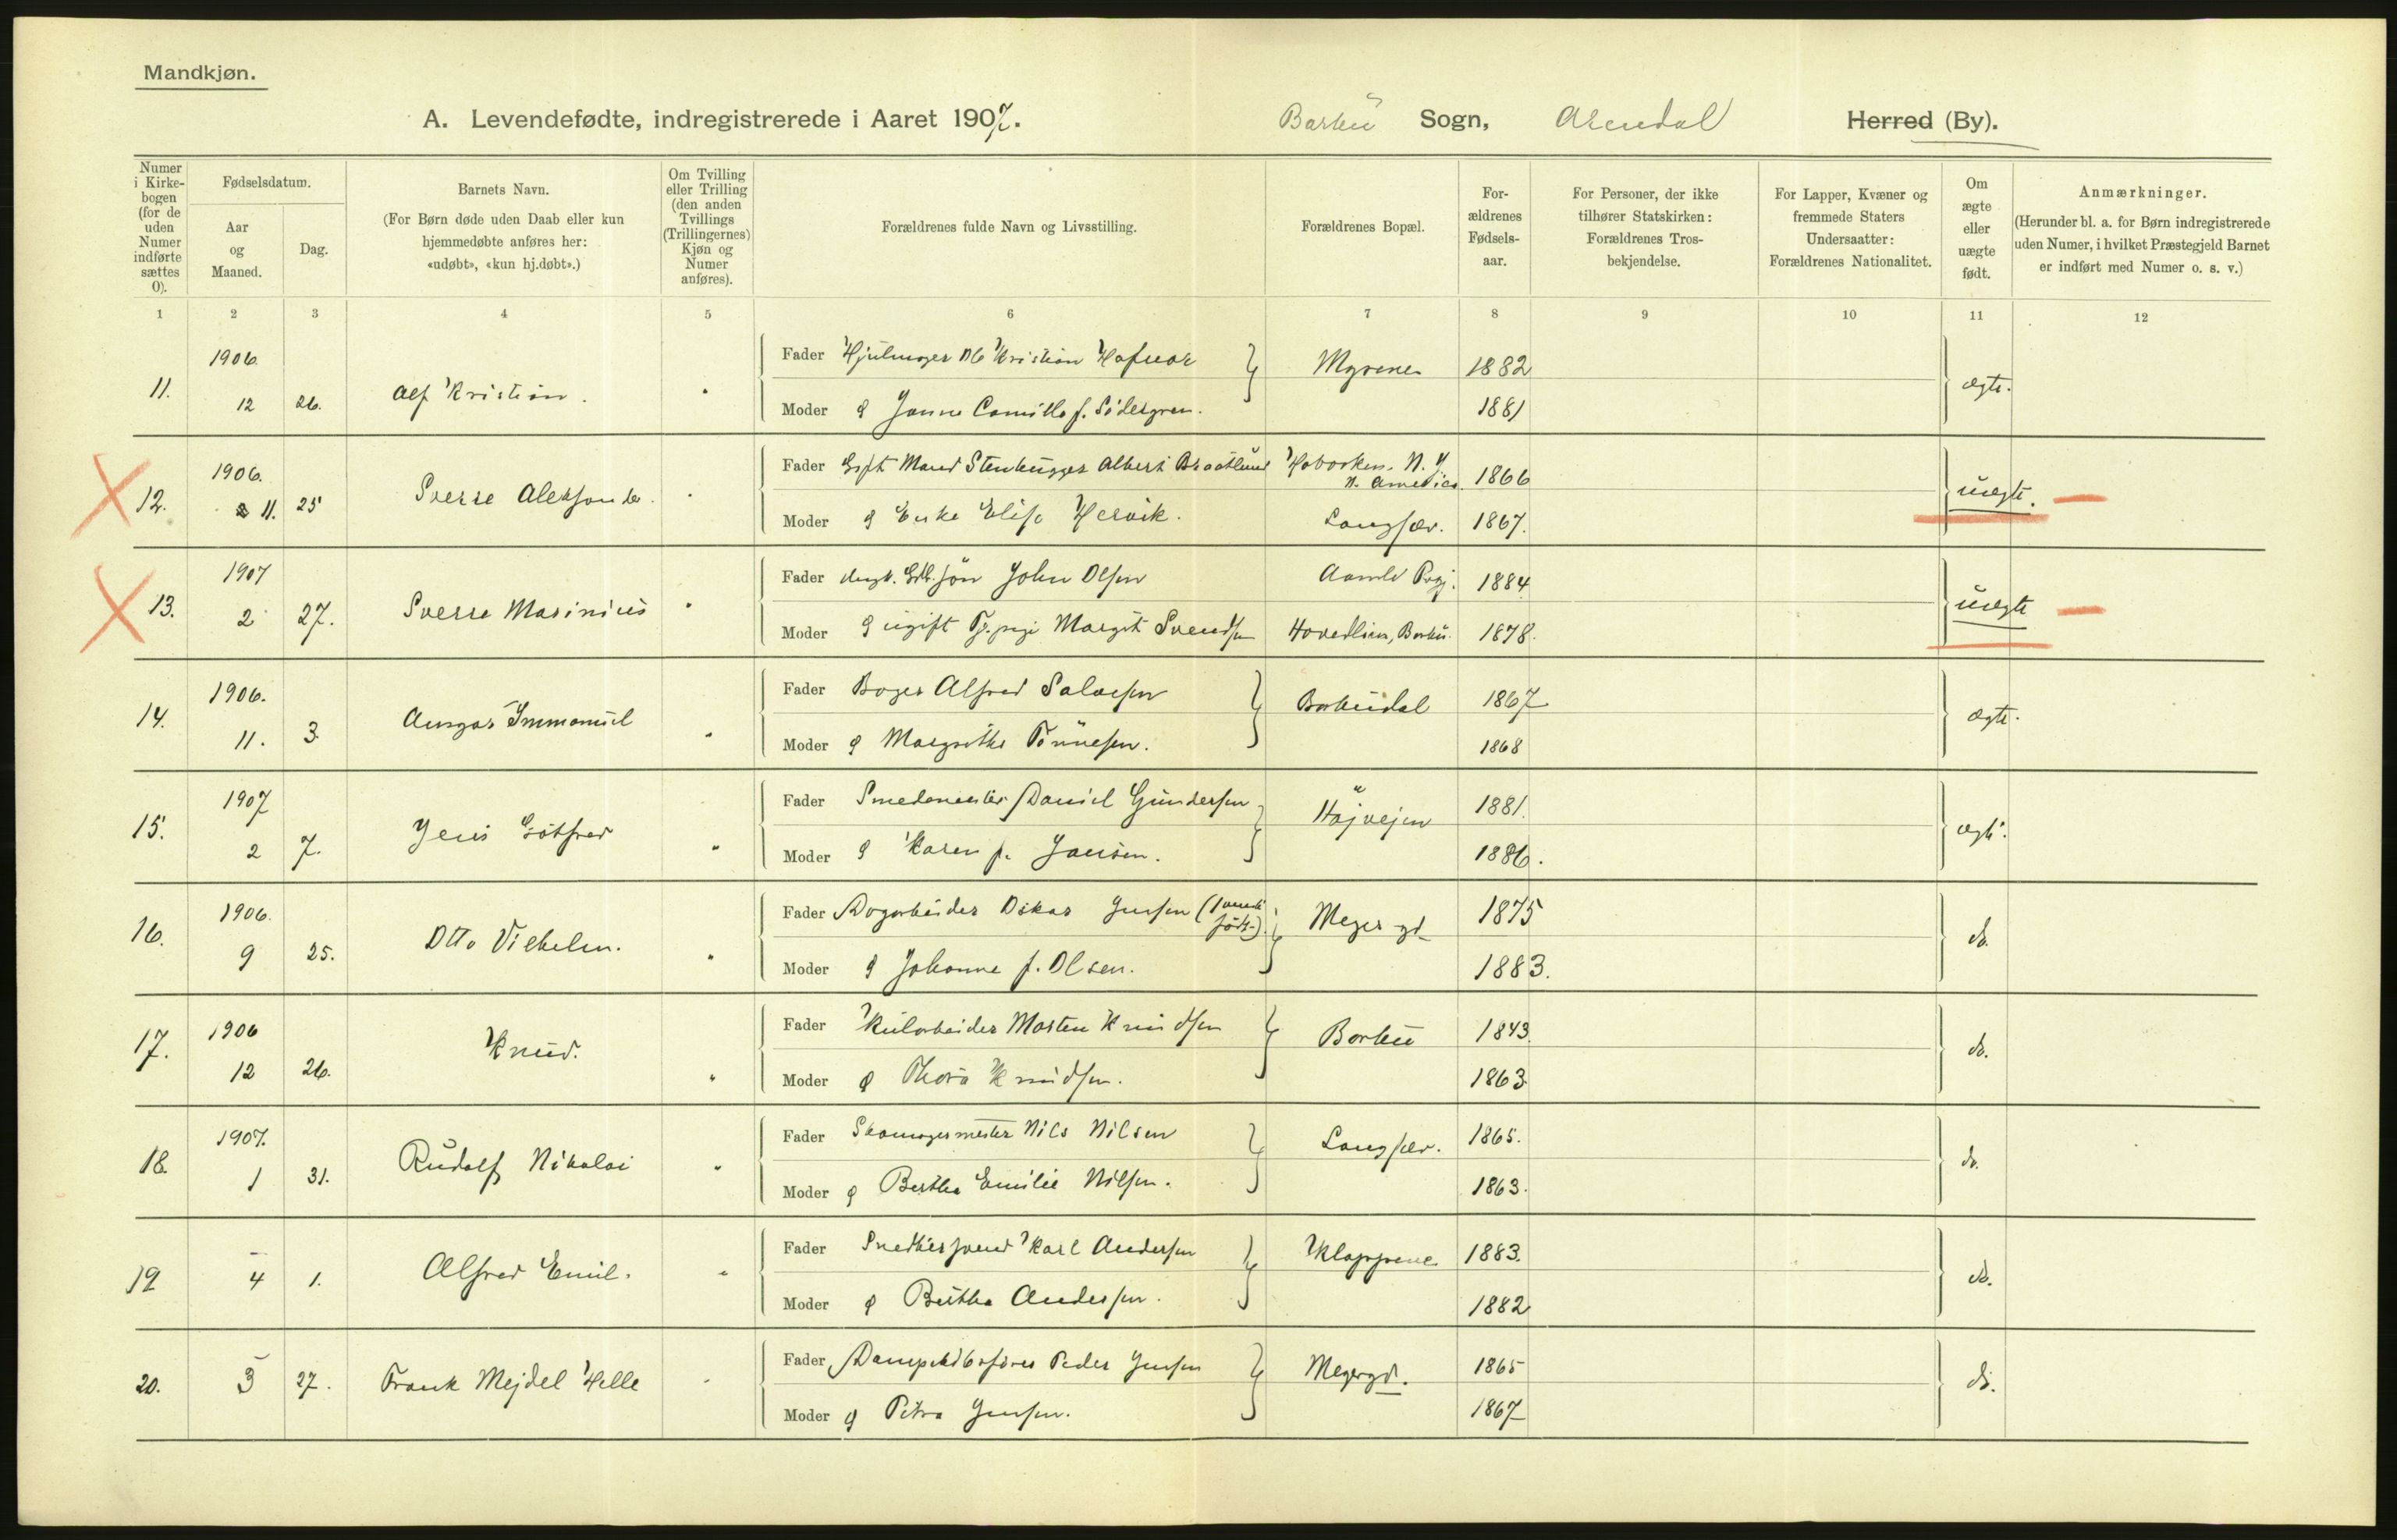 Mandkjøn.
A. Levendefødte, indregistrerede i Aaret 1907. Barbu Sogn, Arendal Herred (By).
Numer i Kirke- bogen (for de uden Numer indførte sættes 0).
Fødselsdatum.
Aar og Maaned.
Dag.
Barnets Navn.
(For Børn døde uden Daab eller kun hjemmedøbte anføres her: «udøbt», «kun hj.døbt».)
Om Tvilling eller Trilling (den anden Tvillings (Trillingernes) Kjøn og Numer anføres).
Forældrenes fulde Navn og Livsstilling.
Forældrenes Bopæl.
For- ældrenes Fødsels- aar.
For Personer, der ikke tilhører Statskirken: Forældrenes Tros- bekjendelse.
For Lapper, Kvæner og fremmede Staters Undersaatter: Forældrenes Nationalitet.
Om ægte eller uægte født.
Anmærkninger.
(Herunder bl. a. for Børn indregistrerede uden Numer, i hvilket Præstegjeld Barnet er indført med Numer o. s. v.)
1 2 3 4 5 6 7 8 9 10 11 12
11. 1906. 12 26. Alf Kristian. "
Fader Hjulmager Ole Kristian Myrene 1882 ægte.
Moder & Janna Camilla f. Södergren. 1881
12. 1906. 11. 25 Sverre Aleksander. "
Fader Gift Mand Stenhugger Albert Braatlund Hoboken. N. Y. N. Amerika. 1866 uægte.
Moder & Elise Hervik. Langsæv. 1867.
13. 1907 2 27. Sverre Marinius "
Fader ungk. Gdb. søn John Olsen Aamli Prgj. 1884 uægte
Moder & ugift Tj.pige Margit Svendsen Barbu. 1878.
14. 1906. 11. 3. Ansgar Immanuel "
Fader Bager Alfred Salvesen Barbudal 1867 ægte.
Moder & Margrethe Tönnesen. 1868
15. 1907 2 7. Jens Gotfred "
Fader Smedemester Daniel Gundersen Højvejen 1881. ægte.
Moder & Karen f. Jansen. 1886.
16. 1906. 9 25. Otto Vilhelm. "
Fader Dagarbeider Oskar Jensen Meyer gd. 1875 do.
Moder & Johanne f. Olsen. 1883.
17. 1906 12 26. Knud. "
Fader Kularbeider Morten Knudsen Barbu 1843. do.
Moder & Thora Knudsen. 1863
18. 1907. 1 31. Rudolf Nikolai "
Fader Skomagermester Nils Nilsen Langsæv. 1865. do.
Moder & Bertha Emilie Nilsen. 1863.
19 – 4 1. Alfred Emil. "
Fader Snedkersvend Karl Andersen Klappene 1883. do.
Moder & Bertha Andersen. 1882
20. – 3 27. Frank Mejdel Helle "
Fader Dampskibsfører Peder Jensen Meyergd. 1865 do.
Moder & Petra Jensen. 1867